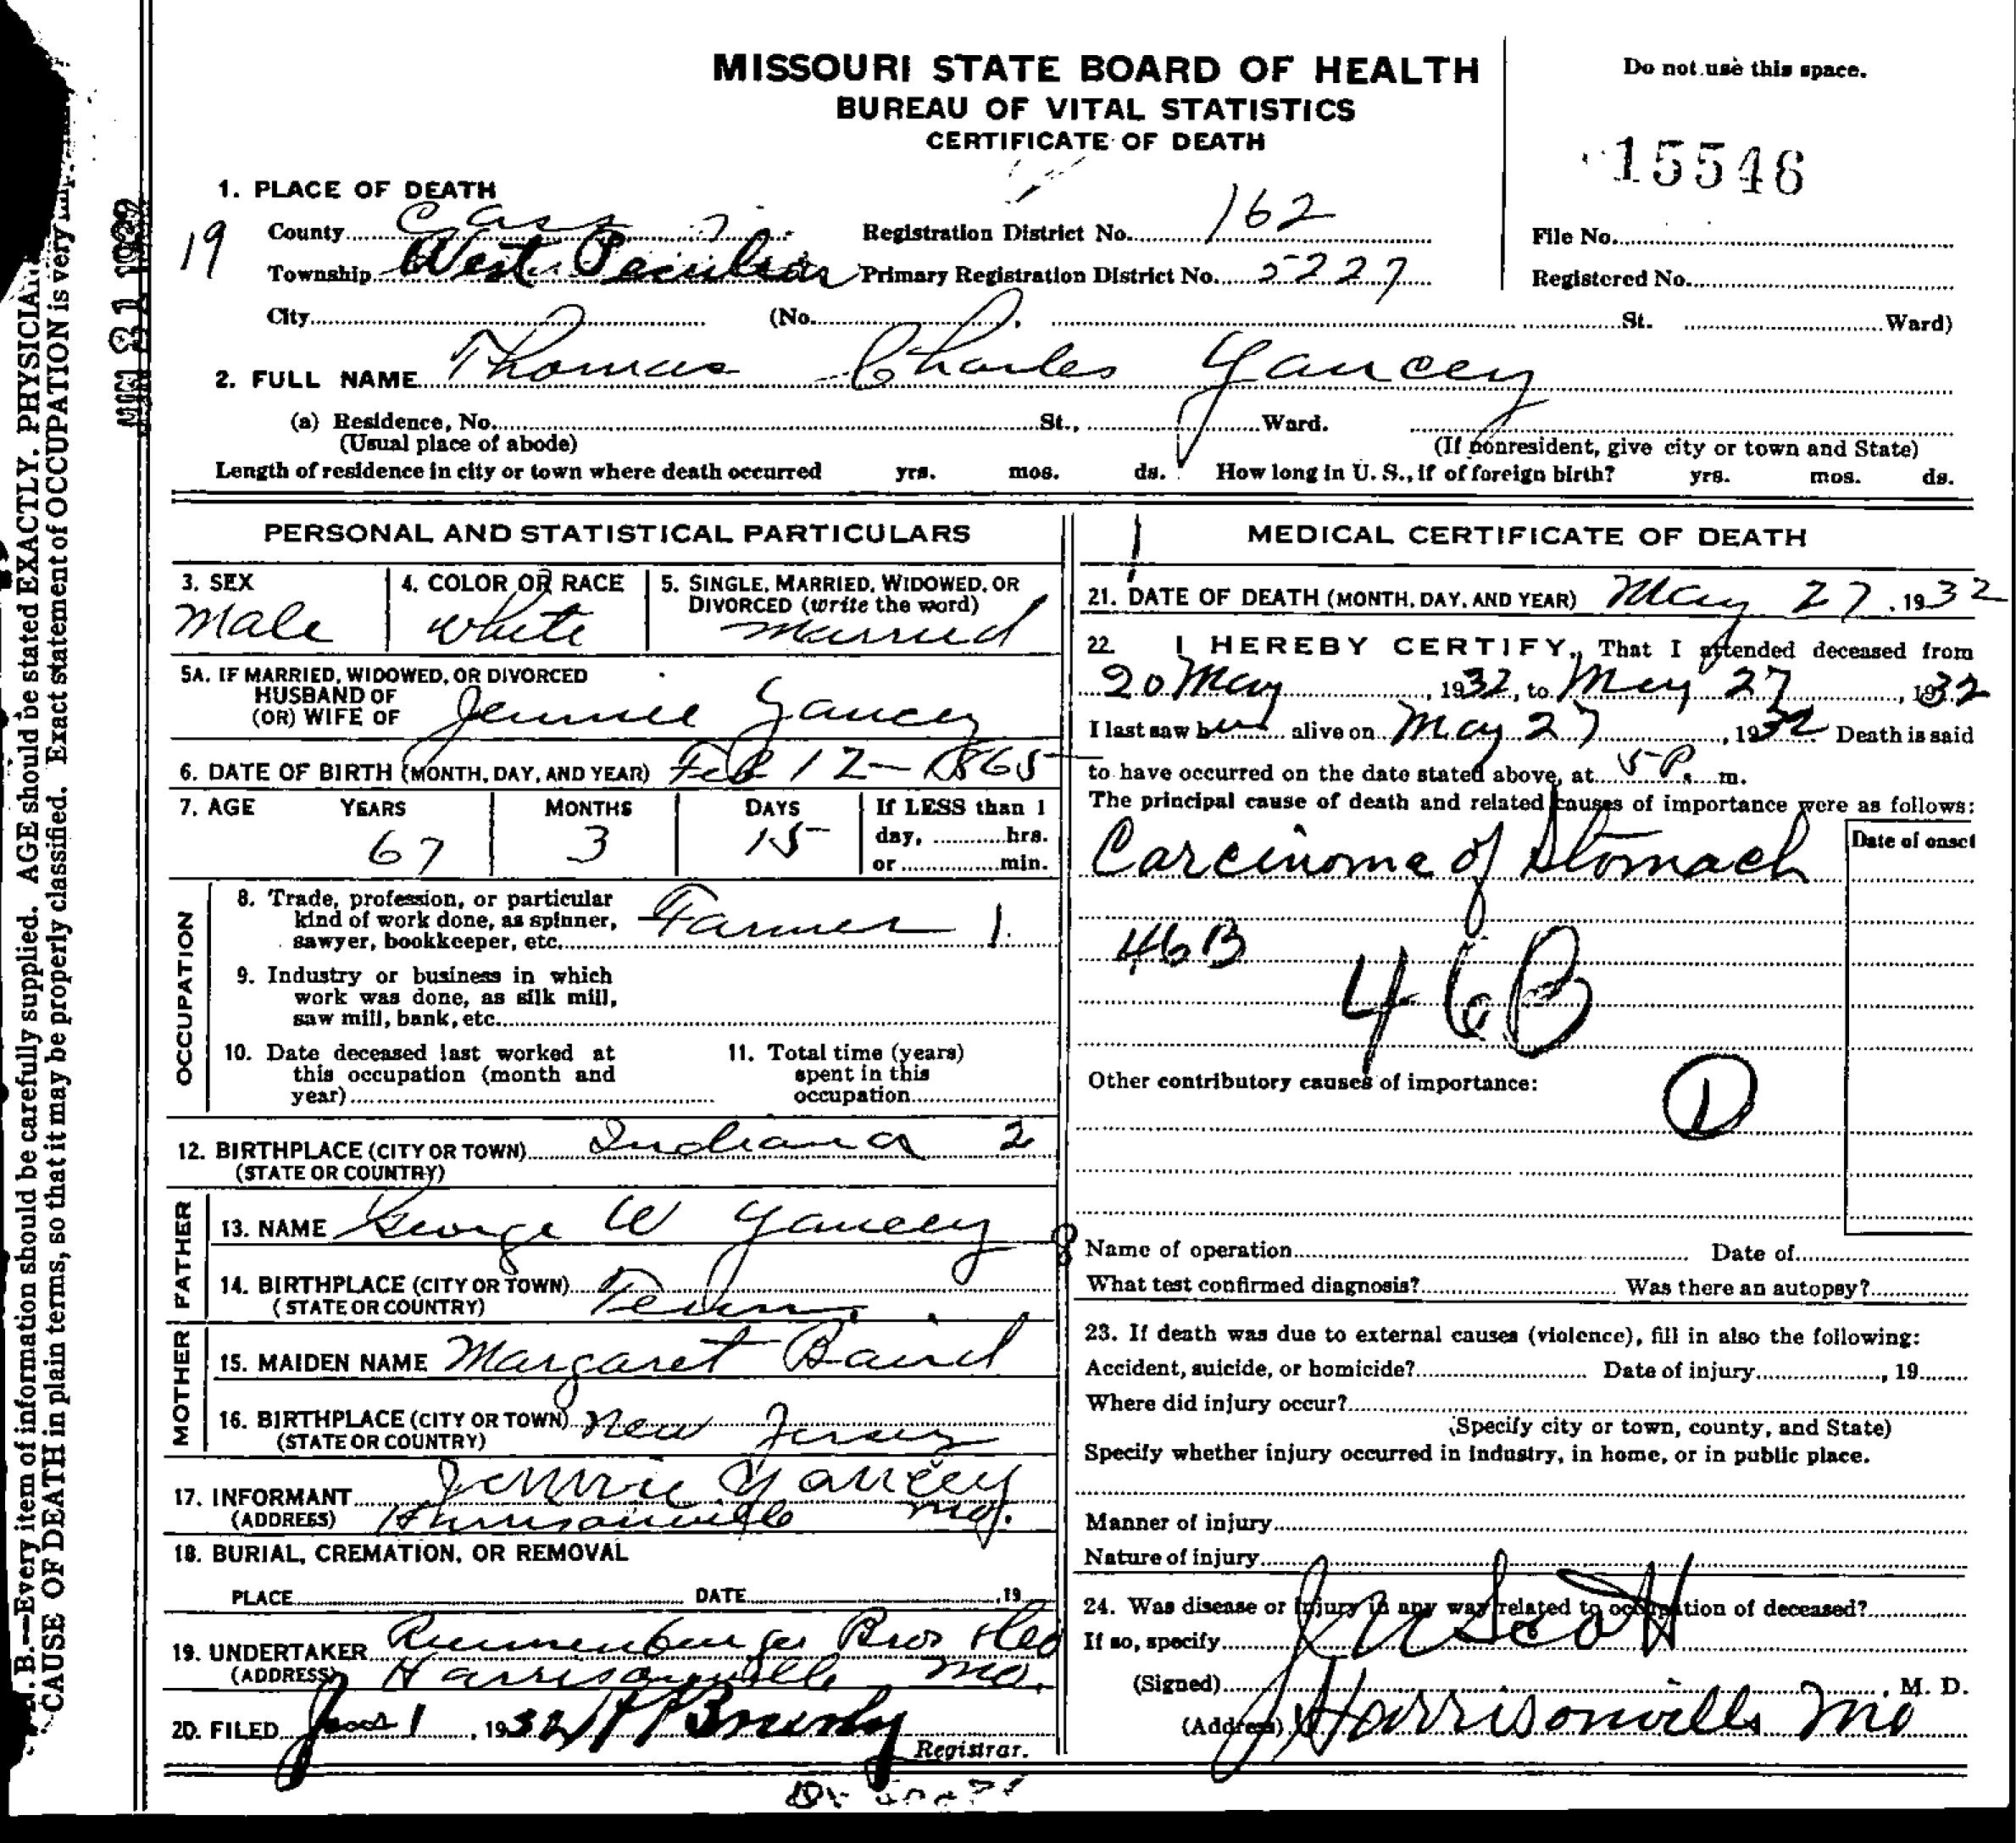 MISSOURI STATE BOARD OF HEALTH
BUREAU OF VITAL STATISTICS
CERTIFICATE OF DEATH
Do not use this space.
15546
1. PLACE OF DEATH
19
County Cass
Registration District No. 162
File No.
Township West Peculiar
Primary Registration District No. 5227
Registered No.
City (No. St. Ward)
2. FULL NAME Thomas Charles Yancey
(a) Residence, No. St., Ward.
(Usual place of abode) (If nonresident, give city or town and State)
Length of residence in city or town where death occurred yrs. mos. ds. How long in U. S., if of foreign birth? yrs. mos. ds.
PERSONAL AND STATISTICAL PARTICULARS
3. SEX Male
4. COLOR OR RACE White
5. SINGLE, MARRIED, WIDOWED, OR DIVORCED (write the word) Married
5A. IF MARRIED, WIDOWED, OR DIVORCED
HUSBAND OF
(OR) WIFE OF Jennie Yancey
6. DATE OF BIRTH (MONTH, DAY, AND YEAR) Feb 12 - 1865
7. AGE YEARS MONTHS DAYS If LESS than 1
67 3 15 day, hrs.
or min.
OCCUPATION
8. Trade, profession, or particular
kind of work done, as spinner,
sawyer, bookkeeper, etc. Farmer 1
9. Industry or business in which
work was done, as silk mill,
saw mill, bank, etc.
10. Date deceased last worked at
this occupation (month and
year)
11. Total time (years)
spent in this
occupation
12. BIRTHPLACE (CITY OR TOWN) Indiana 2
(STATE OR COUNTRY)
FATHER
13. NAME George W Yancey
14. BIRTHPLACE (CITY OR TOWN) Tenn.
(STATE OR COUNTRY)
MOTHER
15. MAIDEN NAME Margaret Baird
16. BIRTHPLACE (CITY OR TOWN) New Jersey
(STATE OR COUNTRY)
17. INFORMANT Jennie Yancey
(ADDRESS) Harrisonville Mo.
18. BURIAL, CREMATION, OR REMOVAL
PLACE DATE , 19
19. UNDERTAKER Bros
(ADDRESS) Harrisonville Mo.
20. FILED 1, 1932
Registrar.
MEDICAL CERTIFICATE OF DEATH
21. DATE OF DEATH (MONTH, DAY, AND YEAR) May 27, 1932
22. I HEREBY CERTIFY, That I attended deceased from
20 May, 1932, to May 27, 1932
I last saw him alive on May 27, 1932 Death is said
to have occurred on the date stated above, at 5 P. m.
The principal cause of death and related causes of importance were as follows:
Date of onset
Carcinoma of Stomach
46B
46B
Other contributory causes of importance:
D
Name of operation Date of
What test confirmed diagnosis? Was there an autopsy?
23. If death was due to external causes (violence), fill in also the following:
Accident, suicide, or homicide? Date of injury , 19
Where did injury occur?
(Specify city or town, county, and State)
Specify whether injury occurred in industry, in home, or in public place.
Manner of injury
Nature of injury
24. Was disease or injury in any way related to occupation of deceased?
If so, specify
(Signed) Scott, M. D.
(Address) Harrisonville Mo
N. B.—Every item of information should be carefully supplied. AGE should be stated EXACTLY. PHYSICIA
CAUSE OF DEATH in plain terms, so that it may be properly classified. Exact statement of OCCUPATION is very